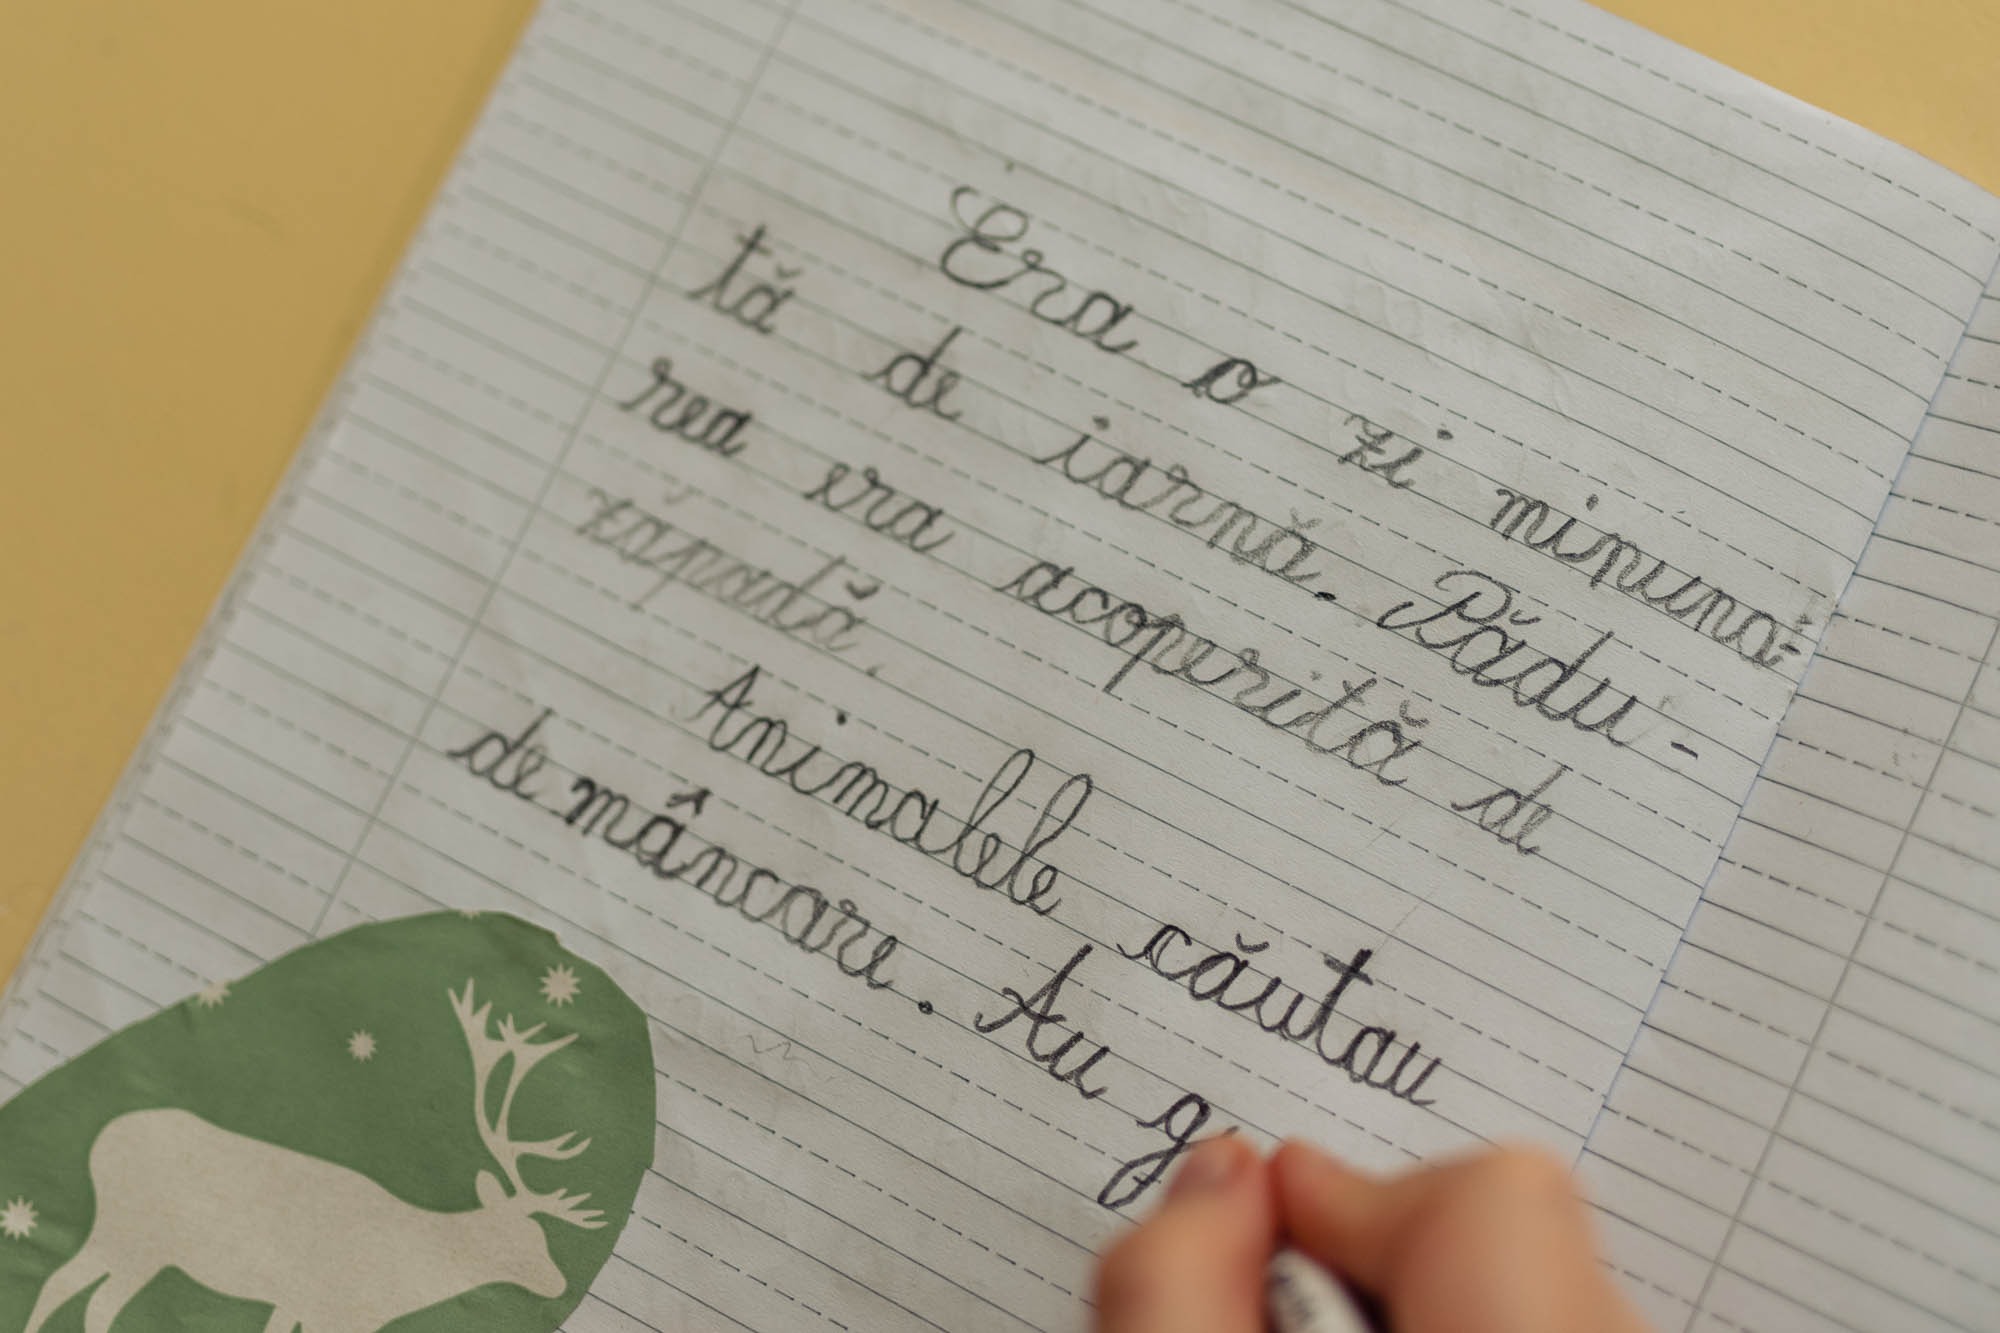 Era o zi minuna-
tă de iarnă. Pădu-
rea era acoperită de
zăpadă.
Animalele căutau
de mâncare. Au